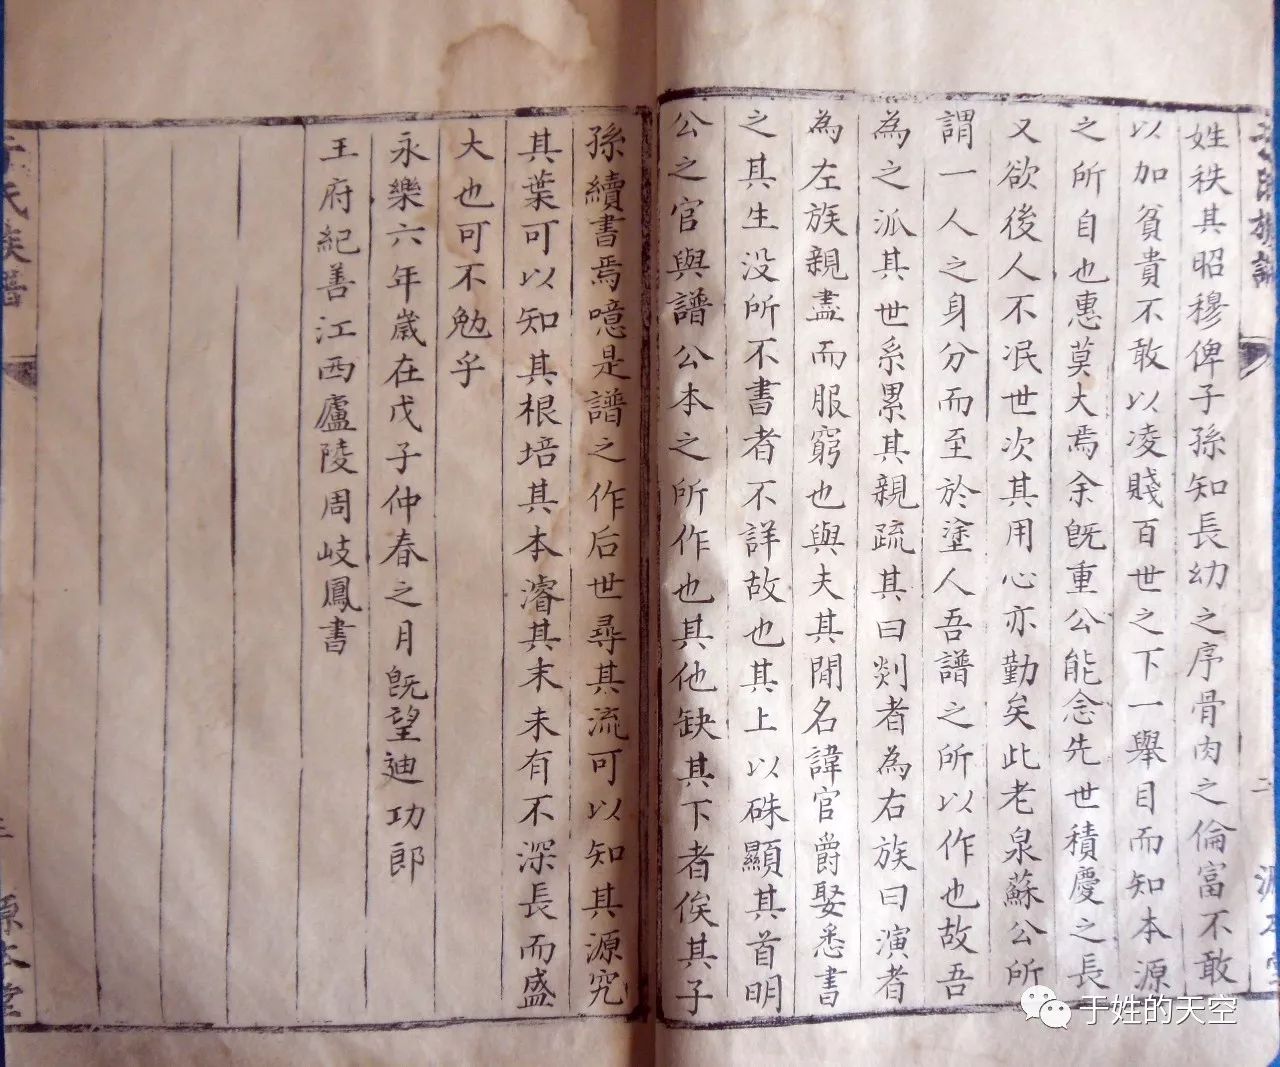 姓秩其昭穆俾子孫知長幼之序骨肉之倫富不敢
以加貧貴不敢以凌賤百世之下一舉目而知本源
之所自也惠莫大焉余旣重公能念先世積慶之長
又欲後人不泯世次其用心亦勤矣此老泉蘇公所
謂一人之身分而至於塗人吾譜之所以作也故吾
為之派其世系累其親疏其曰剡者為右族曰演者
為左族親盡而服窮也與夫其閒名諱官爵娶悉書
之其生没所不書者不詳故也其上以硃顯其首明
公之官與譜公本之所作也其他缺其下者俟其子
孫續書焉噫是譜之作后世尋其流可以知其源究
其葉可以知其根培其本濬其末未有不深長而盛
大也可不勉乎
永樂六年歲在戊子仲春之月旣望迪功郎
王府紀善江西廬陵周岐鳳書
于氏族譜
三
源本堂
于姓的天空